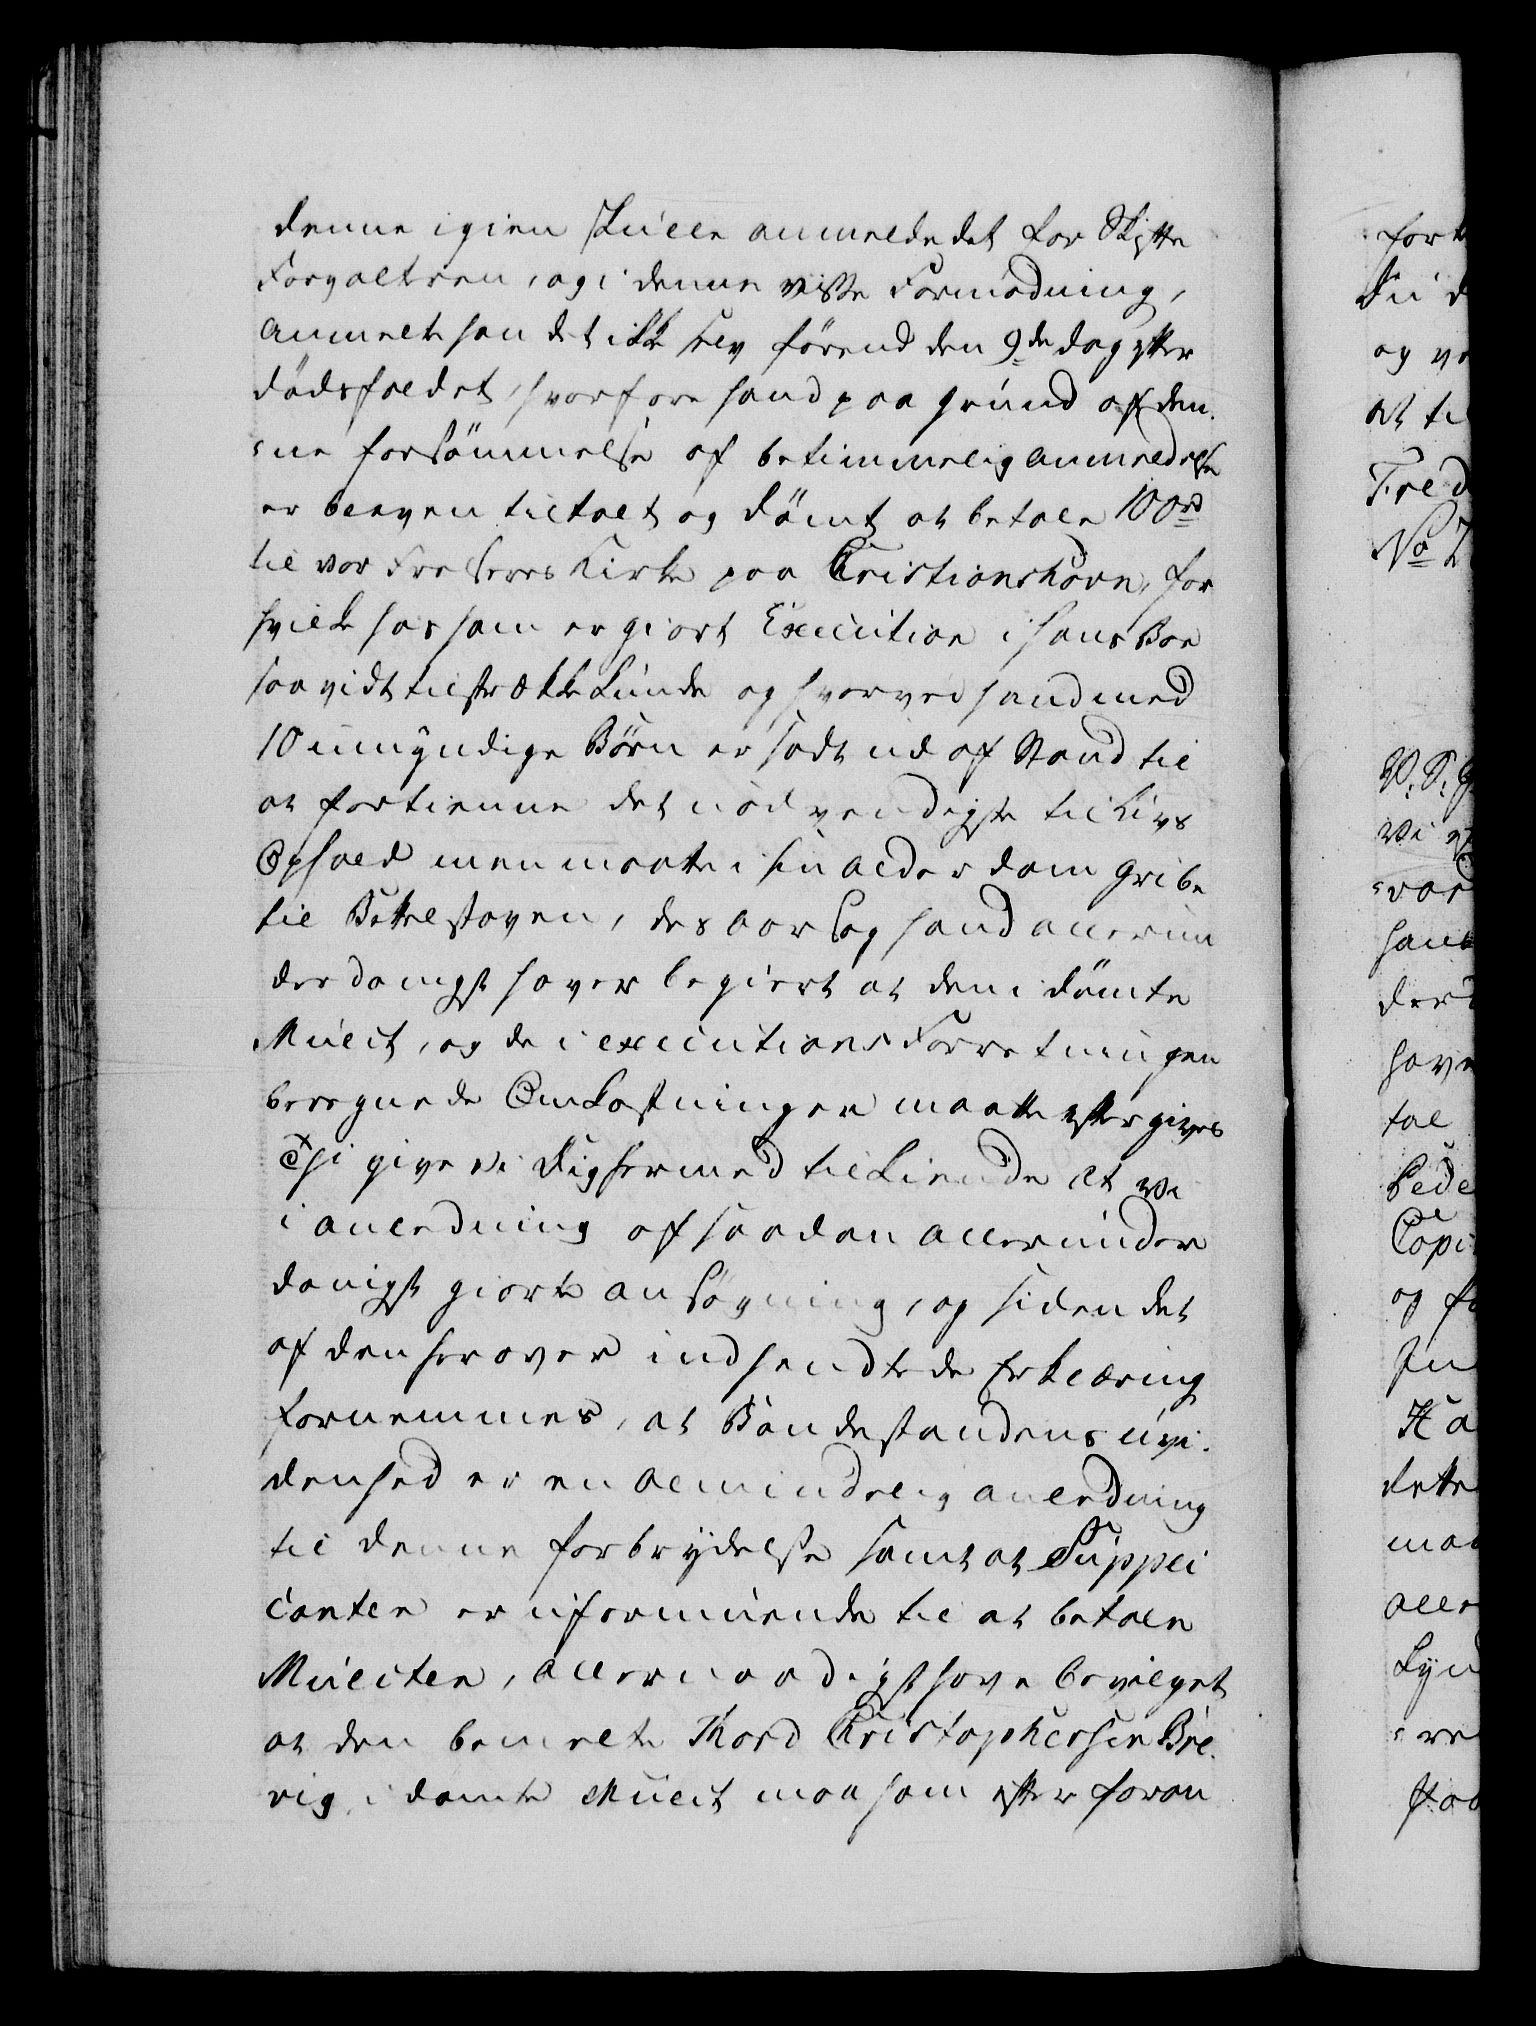 denne igien skulle anmelde det for Skifte
Forvaltren, og i denne visse Formodning,
anmelte han det ikke selv førend den 9de dag efter
dødsfaldet, hvorfore hand paa grund af den-
=ne forsømmelse af betimmelig anmeldelse
er bleven tiltalt og dømt at betale 100 rd
til vor Frelseres Kirke paa Christianshavn, for
hvilke hos ham er giort Execution i hans Boe
saavidt tilstrække kunde og hvorved hand med
10 umyndige Børn er sadt ud af Stand til
at fortienne det nødvendigste til Livs
Ophold men maatte i sin alderdom gribe
til Bettelstaven, des aarsag hand allerun
derdanigst haver begiert at den i dømte
Mulct, og de i executions Forretningen
beregnede Omkostninger maatte eftergives
Thi give vi dig hermed tilkiende at vi
i anledning af saadan allerunder
danigst giorte ansøgning, og siden det
af den herover indhændtede Erklæring
fornemmes, at Bondestandens uvi-
denhed er en almindelig anledning
til denne forbrydelse samt at Suppli
canten er uformuende til at betale
Mulcten, allernaadigst have bevilget
at den bemelte Thord Christophersen Bre-
vig i dømte Mulct maa som efter foran
fort
og
at ti
Fred
No
hand
have
tal
Pede
Copi
og
dette
alle